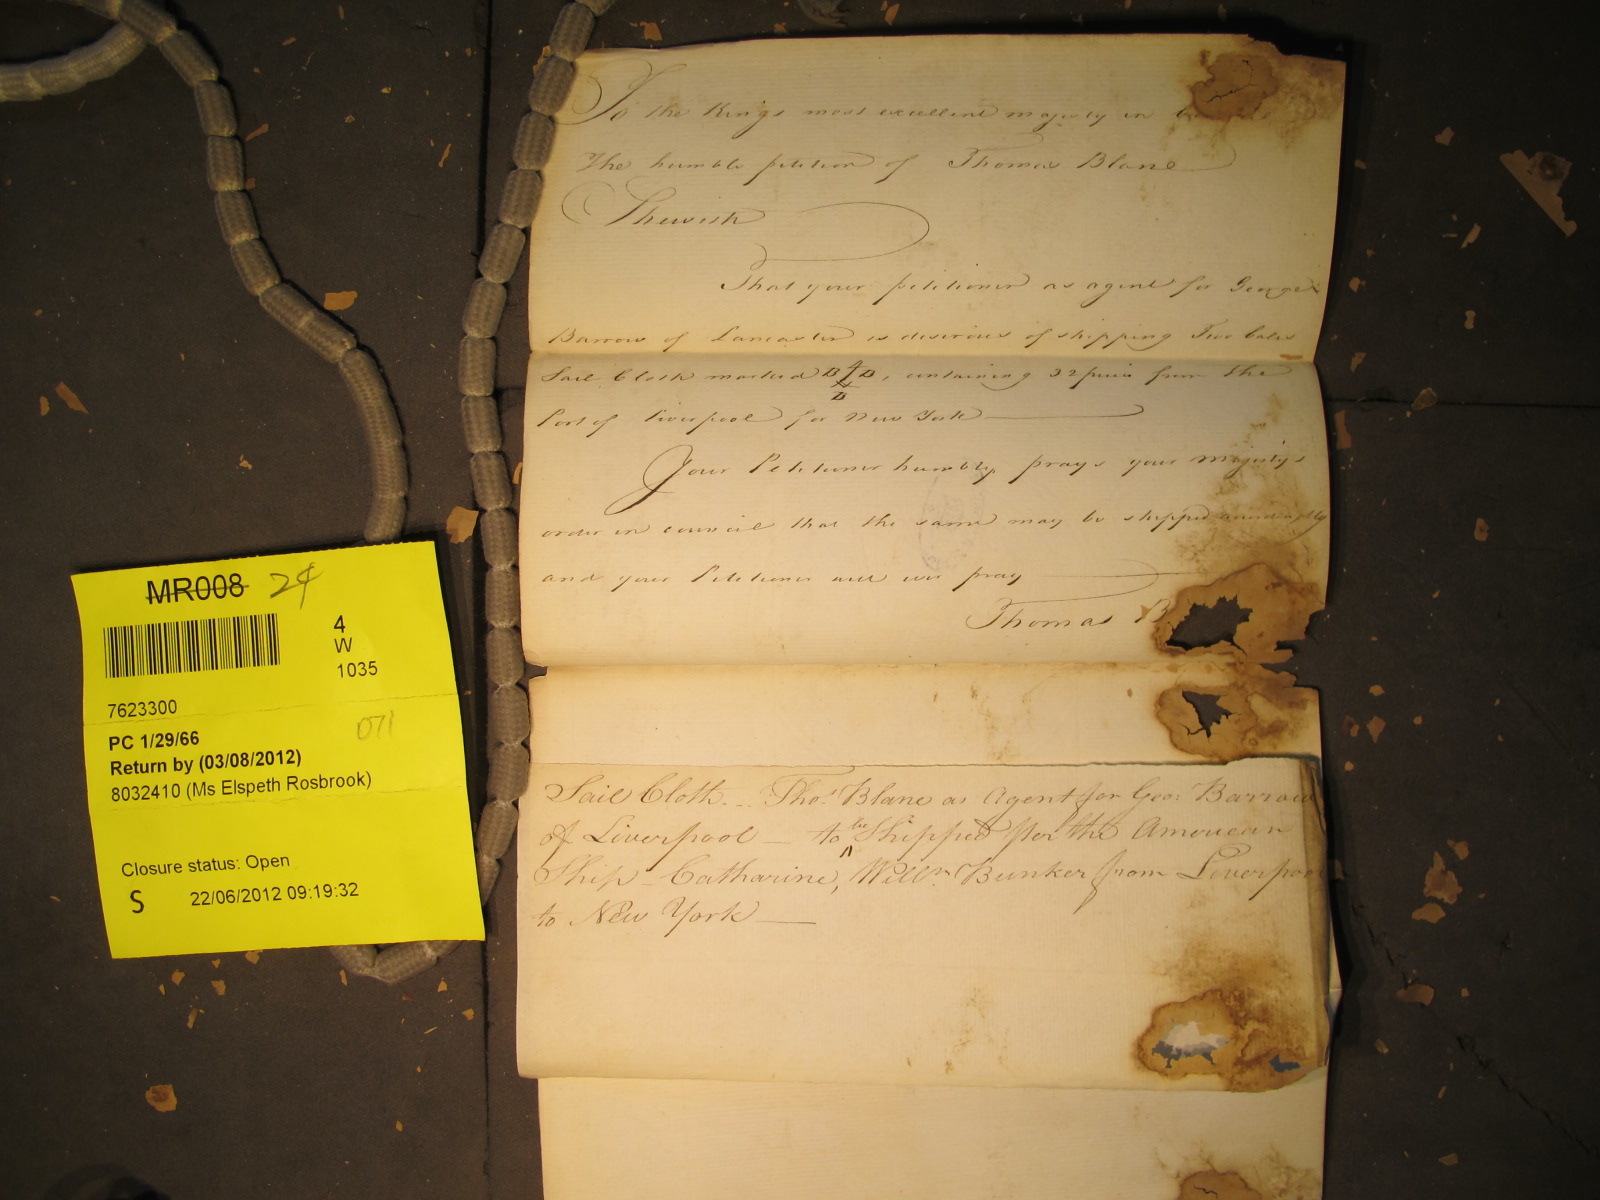 MR008 24
4
W
1035
7623300
071
PC 1/29/66
Return by (03/08/2012)
8032410 (Ms Elspeth Rosbrook)
Closure status: Open
S 22/06/2012 09:19:32
To the Kings most excellent majesty in
The humble petition of Thomas Blane
Sheweth
That your petitioner as agent for George
Barrow of Lancaster is desirous of shipping Two bales
Sail Cloth marked B 4 B, containing 32 pieces from the
B
Port of Liverpool for New York
Your Petitioner humbly prays your majesty's
order in council that the same may be shipped accordingly
and your Petitioner will ever pray
Thomas B
Sail Cloth. Thos. Blane as Agent for Geo: Barrow
of Liverpool — to be Shipped per the American
Ship - Catharine, Willm. Bunker from Liverpool
to New York